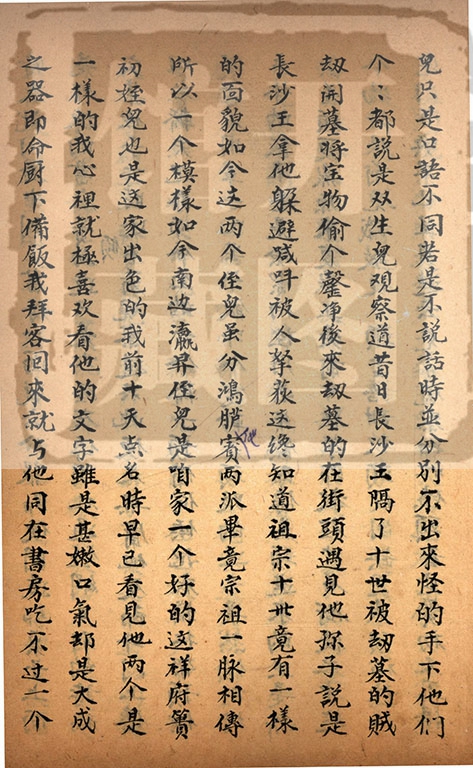 兒只是口語不同若是不説話時並分別不出來怪的手下他們
个：都説是双生兒观察道昔日長沙王隔了十世被刼墓的賊
刼開墓将宝物偷个罄净後來刼墓的在街頭遇見他孫子説是
長沙王拿他躲避喊呌被人拏获这纔知道祖宗十卅竟有一樣
的面貌如今这两个侄兒虽分鴻胪賓两派畢竟宗祖一脉相傳
他
所以一个模樣如今南边瀛昇侄兒是咱家一个好的这祥府簧
初姪兒也是这家出色的我前十天点名時早已看見他两个是
一樣的我心裡就極喜欢看他的文字雖是甚嫩口氣却是大成
之器即命厨下備飯我拜客回來就与他同在書房吃不过一个